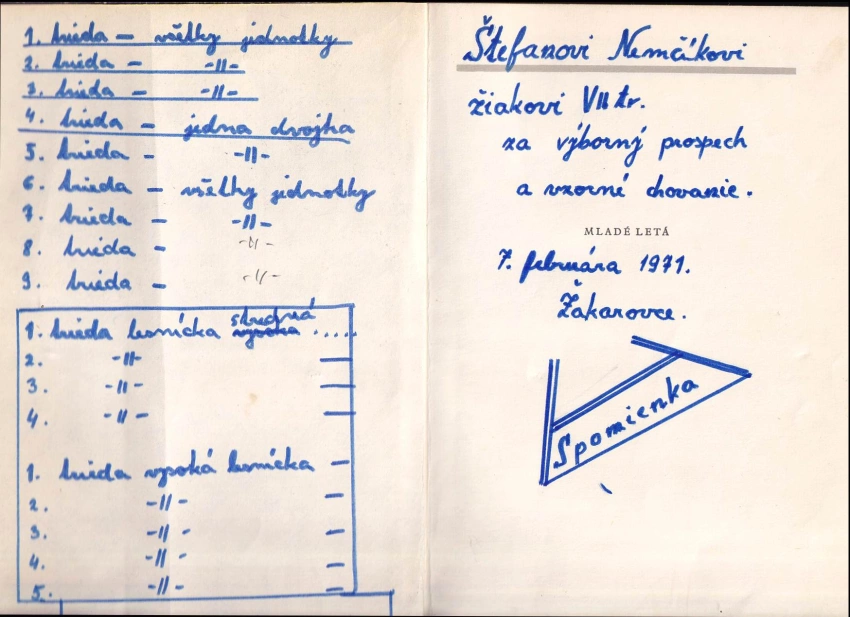 1. trieda — všetky jednotky
2. trieda — -||-
3. trieda — -||-
4. trieda — jedna dvojka
5. trieda — -||-
6. trieda — všetky jednotky
7. trieda — -||-
8. trieda — -||-
9. trieda — -||-
1. trieda lesnícka stredná vysoka .....
2. -||- —
3. -||- —
4. -||- —
1. trieda vysoká lesnícka —
2. -||- —
3. -||- —
4. -||- —
5. -||- —
Štefanovi Nemčíkovi
žiakovi VII tr.
za výborný prospech
a vzorné chovanie.
MLADÉ LETÁ
7. februára 1971.
Žakarovce.
Spomienka